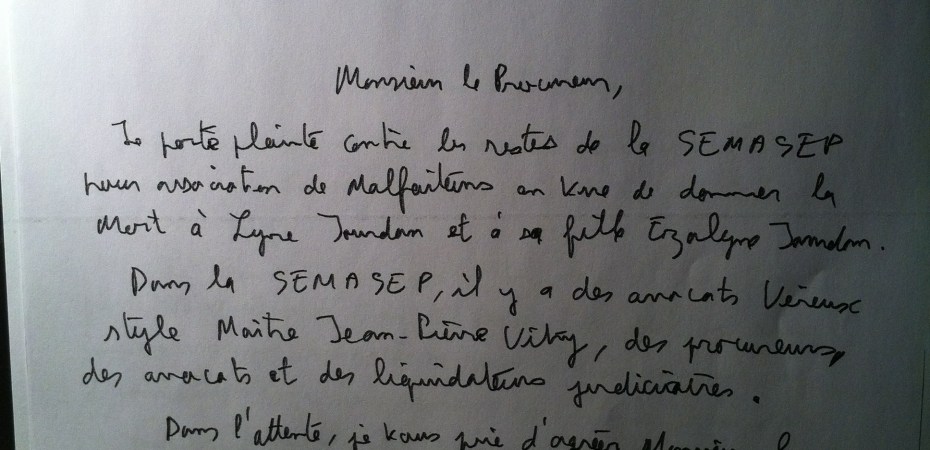 Monsieur le Procureur,
Je porte plainte contre les restes de la SEMASEP
pour association de Malfaiteurs en vue de donner la
Mort à Lyne Jourdan et à sa fille
Dans la SEMASEP, il y a des avocats Véreux
style Maître Jean-Pierre Vitry, des procureurs,
des avocats et des liquidateurs judiciaires.
Dans l'attente, je vous prie d'agréer Monsieur l